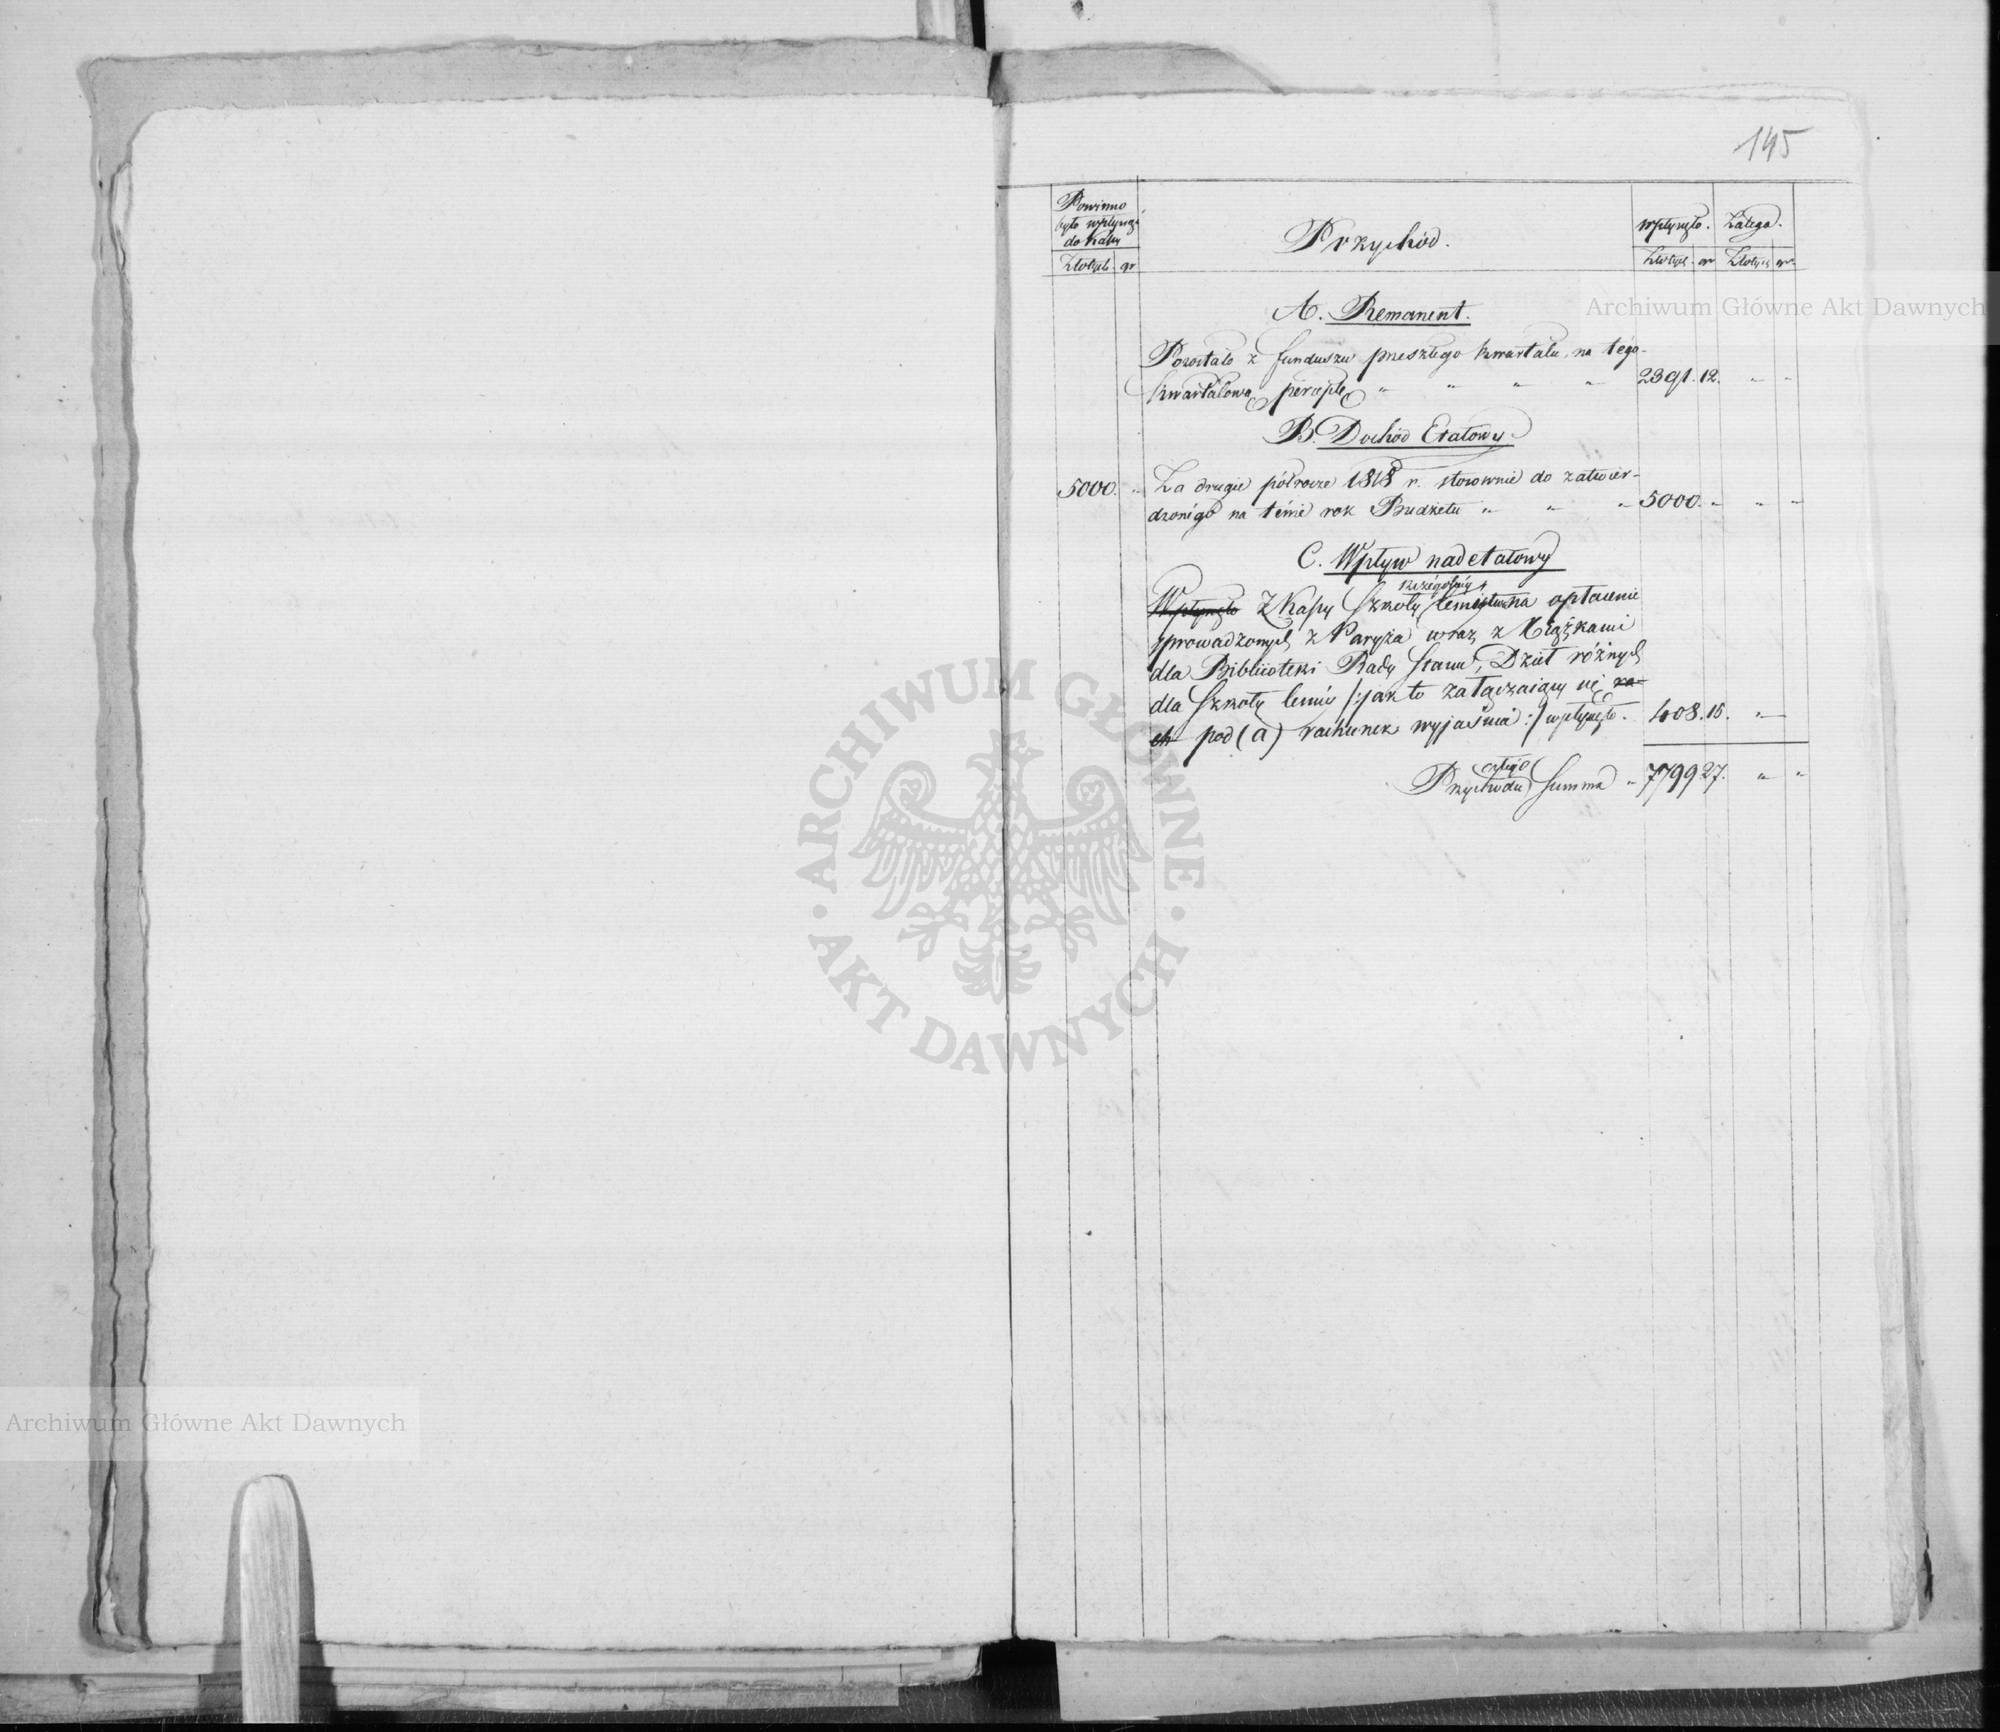 145
Powinno
było wpłynąć
do Kassy
Złotych gr
Przychód.
Wpłynęło.
Zalega.
Złotych gr
Złotych gr.
A. Remanent.
Pozostało z funduszu przeszłego kwartału na tego-
kwartałową percepte " " " " 2391. 12. " "
B. Dochód Etatowy.
5000. " Za drugie półrocze 1818 r. stosownie do zatwier-
dzonégo na ténże rok Budżetu " " " 5000. " " "
C. Wpływ nadetatowy
szczególnéy
Wpłynęło Z Kassy Szkoły leśnictwa na opłacenie
sprowadzonych z Paryża wraz z Xiążkami
dla Biblioteki Rady Stanu, Dzieł różnych
dla Szkoły leśnéy /:jak to załączaiący się ra-
ch pod (a) rachunek wyjaśnia:/ wpłynęło. 408. 15. "
całego
Przychodu Summa " 7799 27. " "
Archiwum Główne Akt Dawnych
ARCHIWUM GŁÓWNE AKT DAWNYCH
Archiwum Główne Akt Dawnych